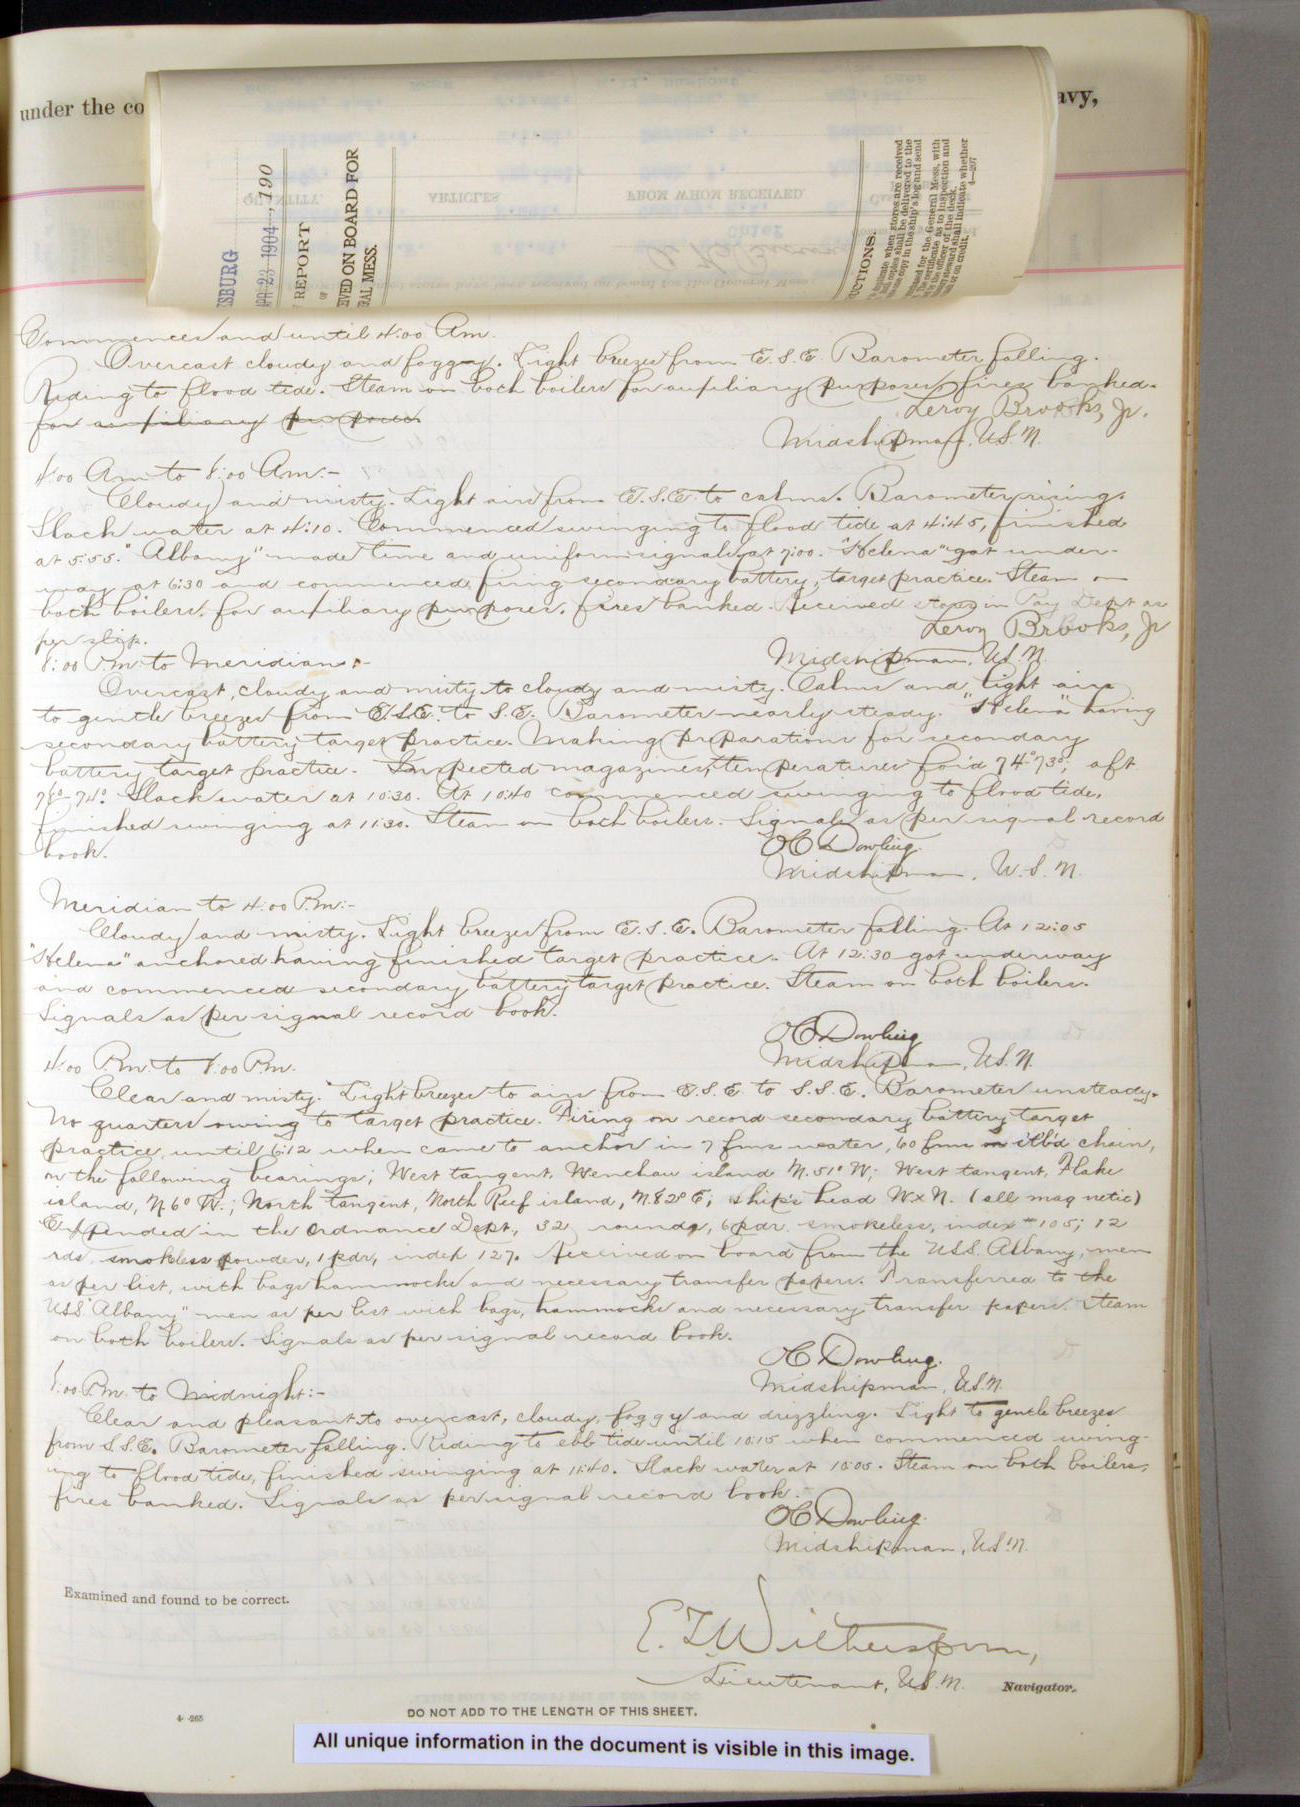 under the co
avy,
SBURG
APR 23 1904, 190
REPORT
OF
IVED ON BOARD FOR
AL MESS.
QUANTITY.
ARTICLES
FROM WHOM RECEIVED.
UCTIONS.
licate when stores are received
copies shall be delivered to the
copy in the ship's log and send
for the General Mess, with
certificate as to inspection and
the officer of the deck.
steward shall indicate whether
or on credit.
4—207
Commences and until 4:00 Am.
Overcast cloudy and foggy. Light breezes from E.S.E. Barometer falling.
Riding to flood tide. Steam on both boilers for auxiliary purposes, fires banked.
for auxiliary purposes.
Leroy Brooks, Jr.
Midshipman, U.S.N.
4:00 Am to 8:00 Am:-
Cloudy and misty. Light airs from E.S.E. to calms. Barometer rising.
Slack water at 4:10. Commenced swinging to flood tide at 4:45, finished
at 5:55. "Albany" made time and uniform signals at 7:00. "Helena" got under-
way at 6:30 and commenced firing secondary battery, target practice. Steam on
both boilers for auxiliary purposes, fires banked. Received stores in Pay Dept as
per slip.
Leroy Brooks, Jr
Midshipman, U.S.N.
8:00 Pm to Meridian:-
Overcast, cloudy and misty to cloudy and misty. Calms and light airs
to gentle breezes from E.S.E. to S.E. Barometer nearly steady. "Helena" having
secondary battery target practice. Making preparations for secondary
battery target practice. Inspected magazines, temperatures for'd 74°73°; aft
74°. Slack water at 10:30. At 10:40 commenced swinging to flood tide,
finished swinging at 11:30. Steam on both boilers. Signals as per signal record
book.
Dowling.
Midshipman, U.S.N.
Meridian to 4:00 P.m:-
Cloudy and misty. Light breezes from E.S.E. Barometer falling. At 12:05
"Helena" anchored having finished target practice. At 12:30 got underway
and commenced secondary battery target practice. Steam on both boilers.
Signals as per signal record book.
Dowling
Midshipman, U.S.N.
4:00 P.m. to 8:00 P.m.
Clear and misty. Light breezes to airs from E.S.E. to S.S.E. Barometer unsteady.
No quarters owing to target practice. Firing on record secondary battery target
practice, until 6:12 when came to anchor in 7 fms water, 60 fms on stb'd chain,
on the following bearings; West tangent, Wenchau island N. 51° W; West tangent, Flake
island, N. 6° W.; North tangent, North Reef island, N. 82° E; ship's head WxN. (all magnetic)
Expended in the Ordnance Dept., 32 rounds, 6 pdr. smokeless, index #105; 12
rds. smokless powder, 1 pdr, index 127. Received on board from the U.S.S. Albany, men
as per list, with bags hammocks and necessary transfer papers. Transferred to the
U.S.S. "Albany" men as per list with bags, hammocks and necessary transfer papers. Steam
on both boilers. Signals as per signal record book.
Dowling.
Midshipman, U.S.N.
8:00 P.m. to Midnight:-
Clear and pleasant to overcast, cloudy, foggy and drizzling. Light to gentle breezes
from S.S.E. Barometer falling. Riding to ebb tide until 10:15 when commenced swing-
ing to flood tide, finished swinging at 11:40. Slack water at 10:05. Steam on both boilers,
fires banked. Signals as per signal record book.
Dowling.
Midshipman, U.S.N.
Examined and found to be correct.
E. T. Witherspoon,
Lieutenant, U.S.N. Navigator.
4—265
DO NOT ADD TO THE LENGTH OF THIS SHEET.
All unique information in the document is visible in this image.